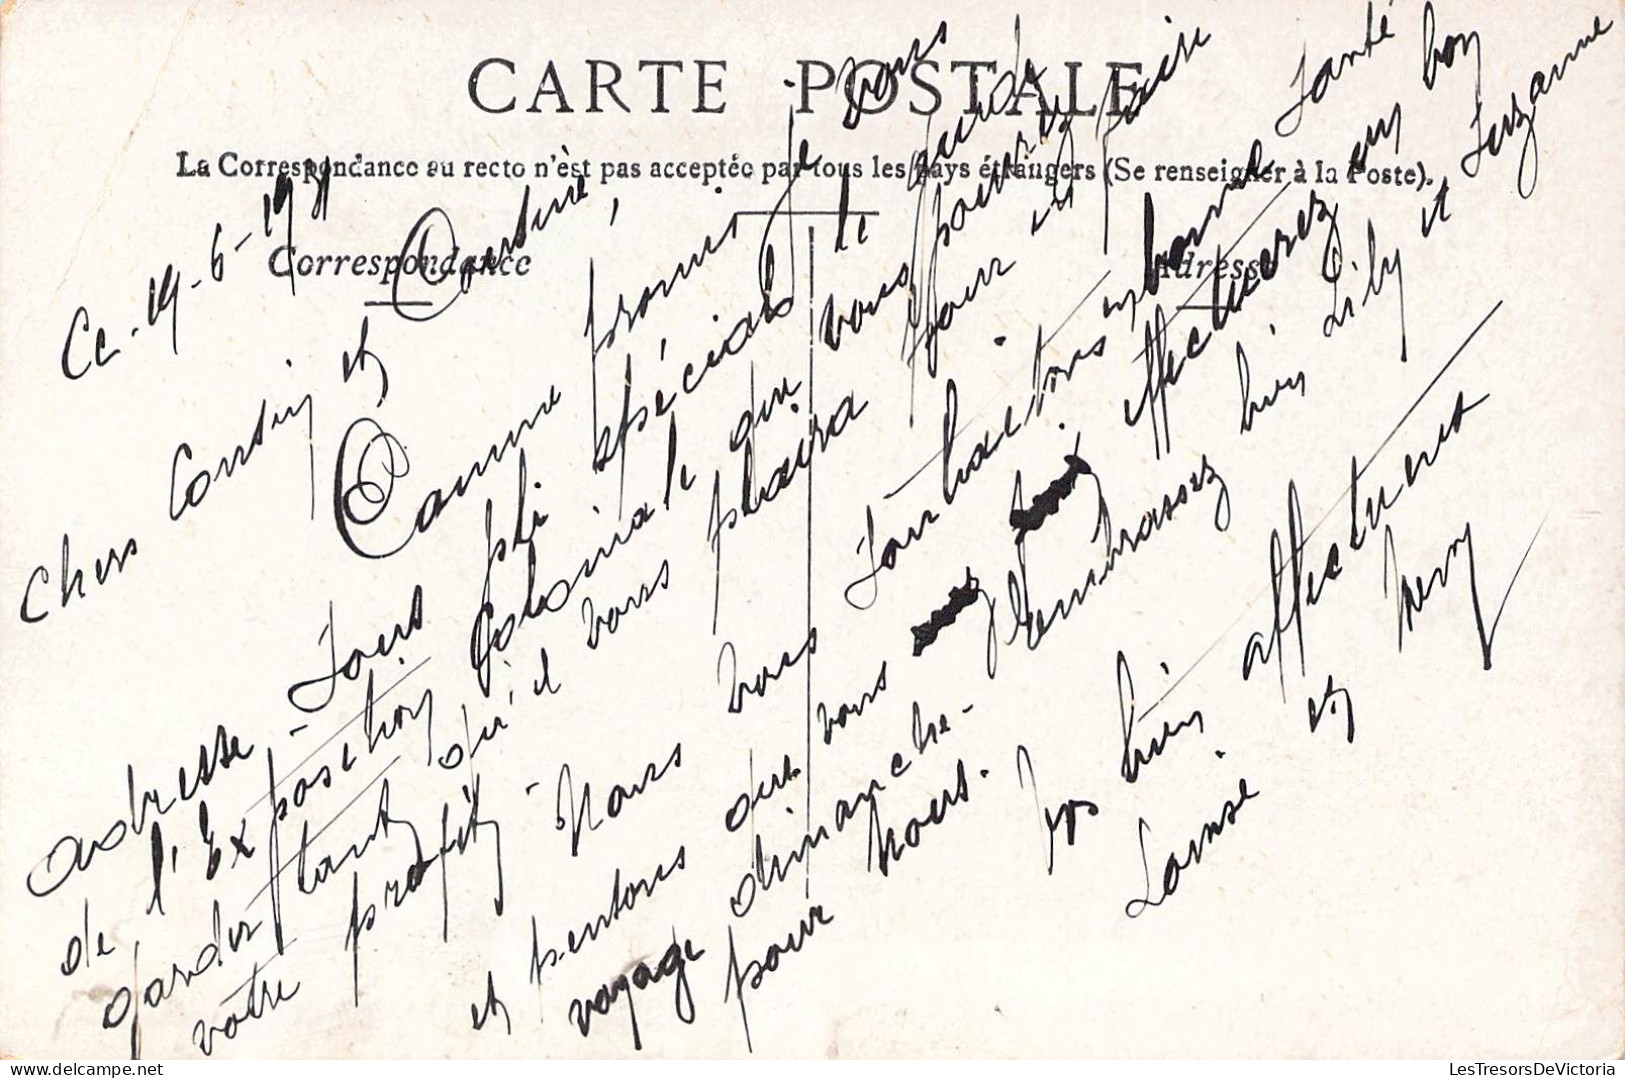 CARTE POSTALE
La Correspondance au recto n'èst pas acceptée par tous les pays étrangers (Se renseigner à la Poste).
Correspondance
Adresse
Ce - 19 - 6 - 1931
Chers Cousin et Cousine,
Comme promis je vous
adresse - sous pli spécial le guide
de l'Exposition Coloniale que vous pourrez
garder tant qu'il vous plaira pour en faire
votre profit - Nous vous souhaitons bonne santé
et pensons que vous effectuerez un bon
voyage dimanche - Embrassez bien Lily et Suzanne
pour nous.
Vos bien affectueux
Louise et
LesTresorsDeVictoria